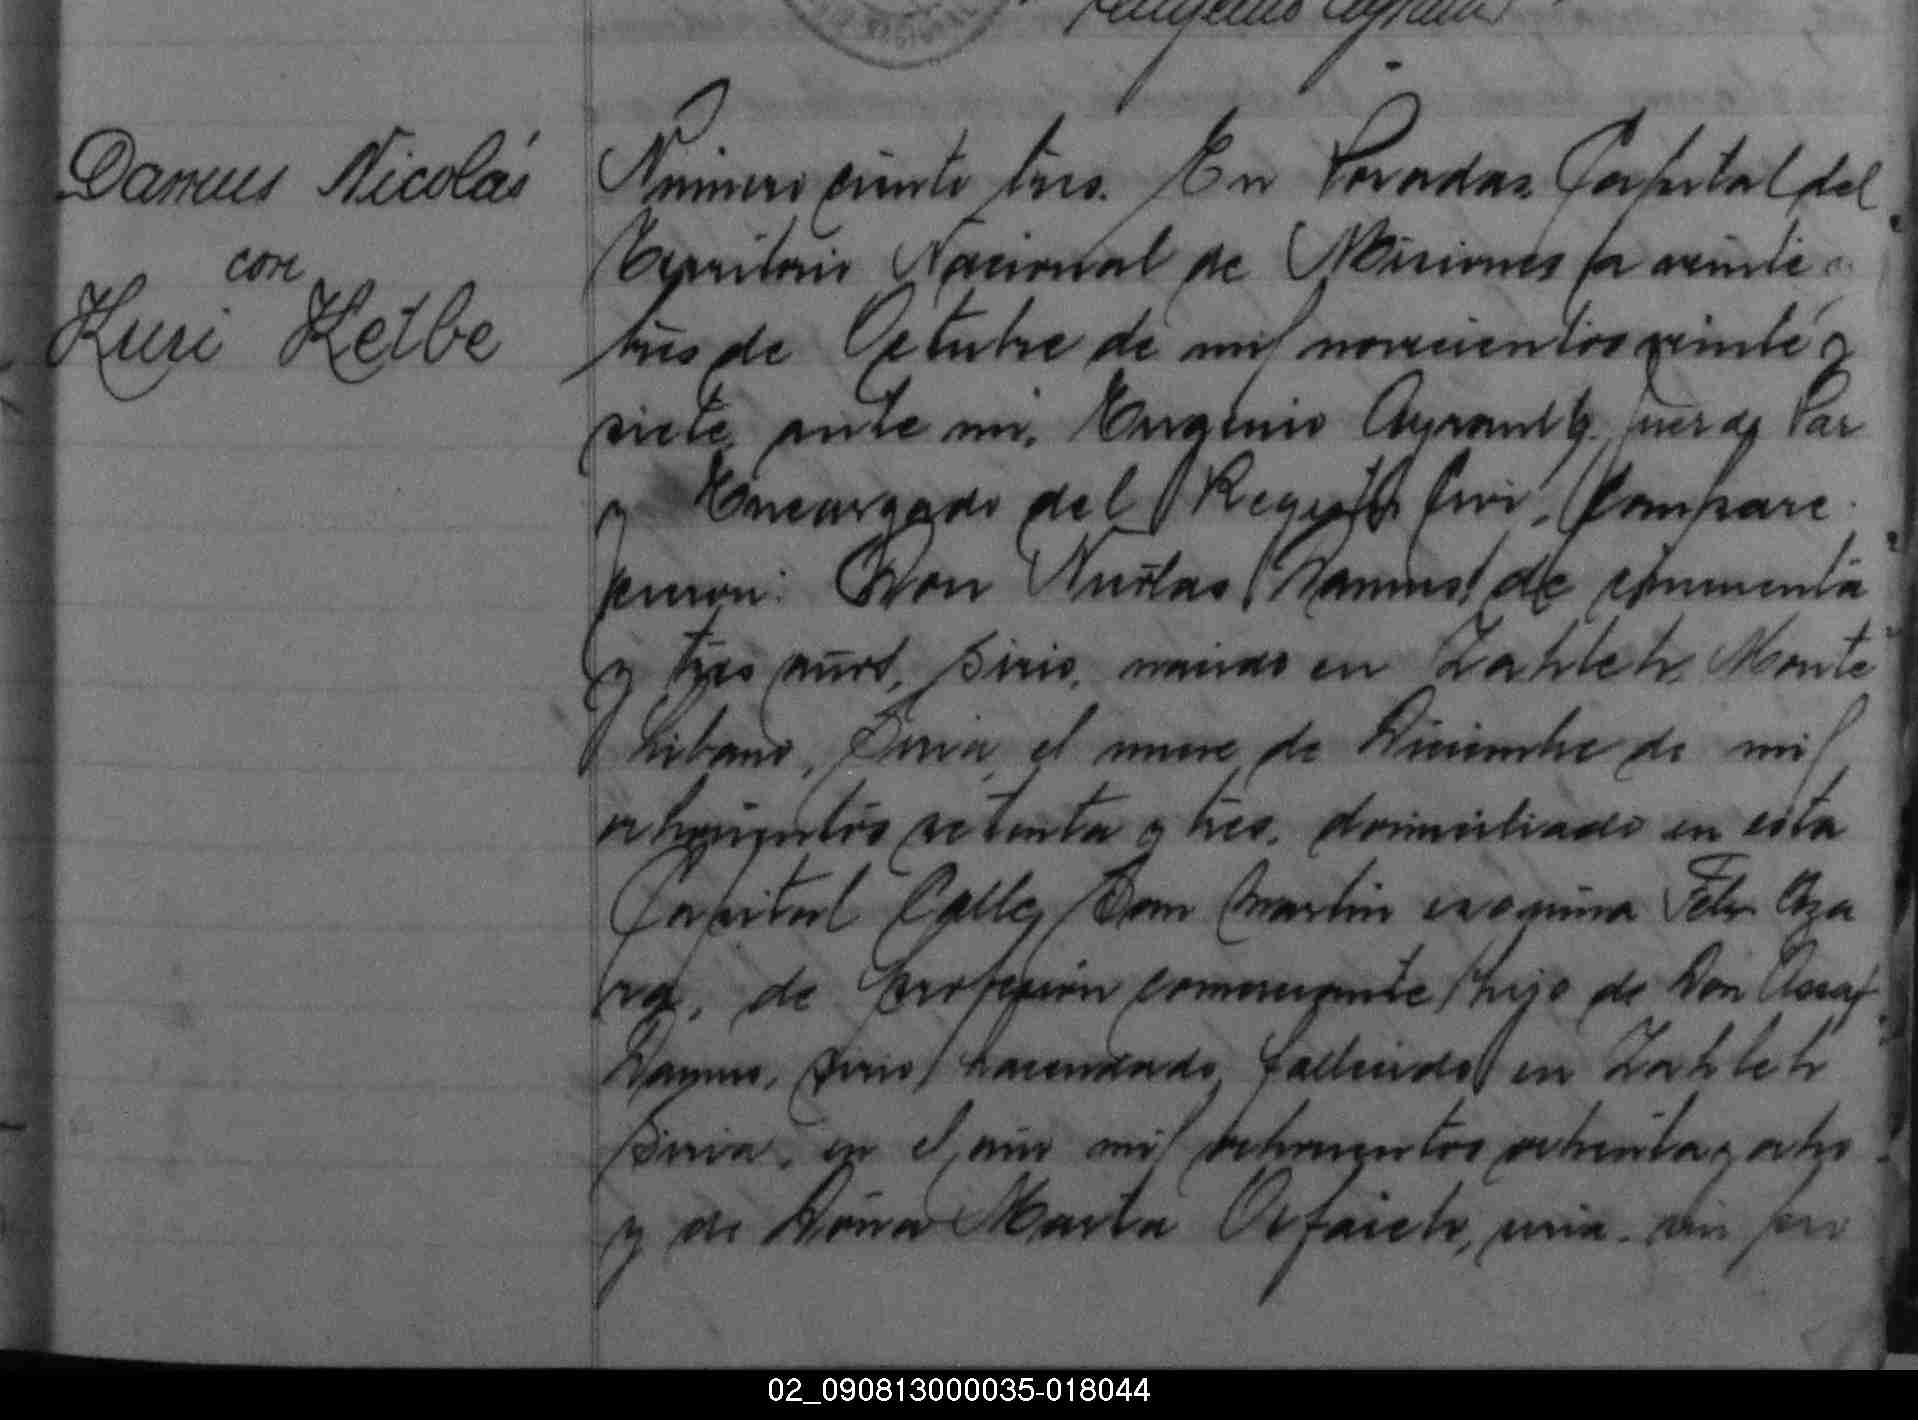 Eugenio Ayrault
Damus Nicolás
con
Kuri Ketbe
Número ciento tres. En Posadas Capital del
Territorio Nacional de Misiones a veinte y
tres de Octubre de mil novecientos veinte y
siete, ante mi, Eugenio Ayrault, Juez de Paz
y Encargado del Registro Civil, Compare
cieron: Don Nicolas Damus, de cincuenta
y tres años, Sirio, nacido en Zahleh, Monte
Libano, Siria, el nueve de Diciembre de mil
ochocientos setenta y tres, domiciliado en esta
Capital Calle San Martin esquina Felix Aza
ra, de profesion comerciante, hijo de Don Assaf
Damus, sirio, hacendado, fallecido en Zahleh
Siria, en el año mil ochocientos ochenta y ocho
y de Doña Marta siria, sin pro
02_090813000035-018044